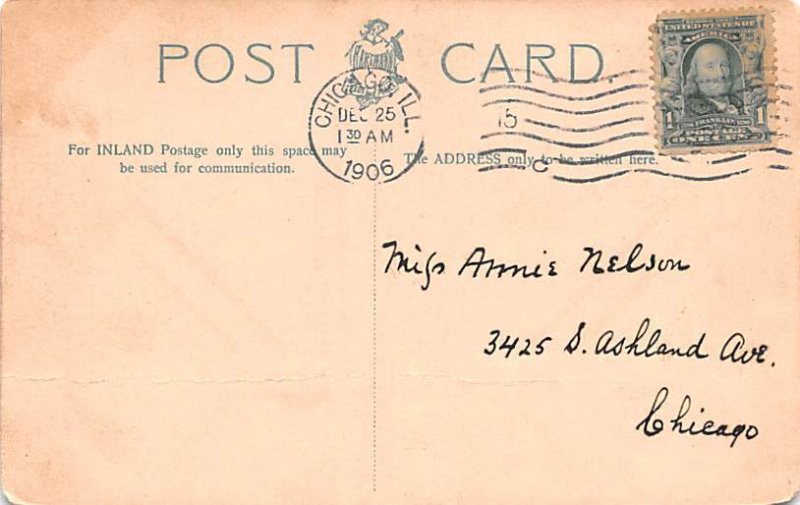 POST CARD.
HARTMANN
CHICAGO, ILL.
DEC 25
1 30 AM
1906
15
C
UNITED STATES OF
AMERICA
1 1
FRANKLIN
POSTAGE
ONE CENT
For INLAND Postage only this space may
be used for communication.
The ADDRESS only to be written here.
Miss Annie Nelson
3425 S. Ashland Ave.
Chicago